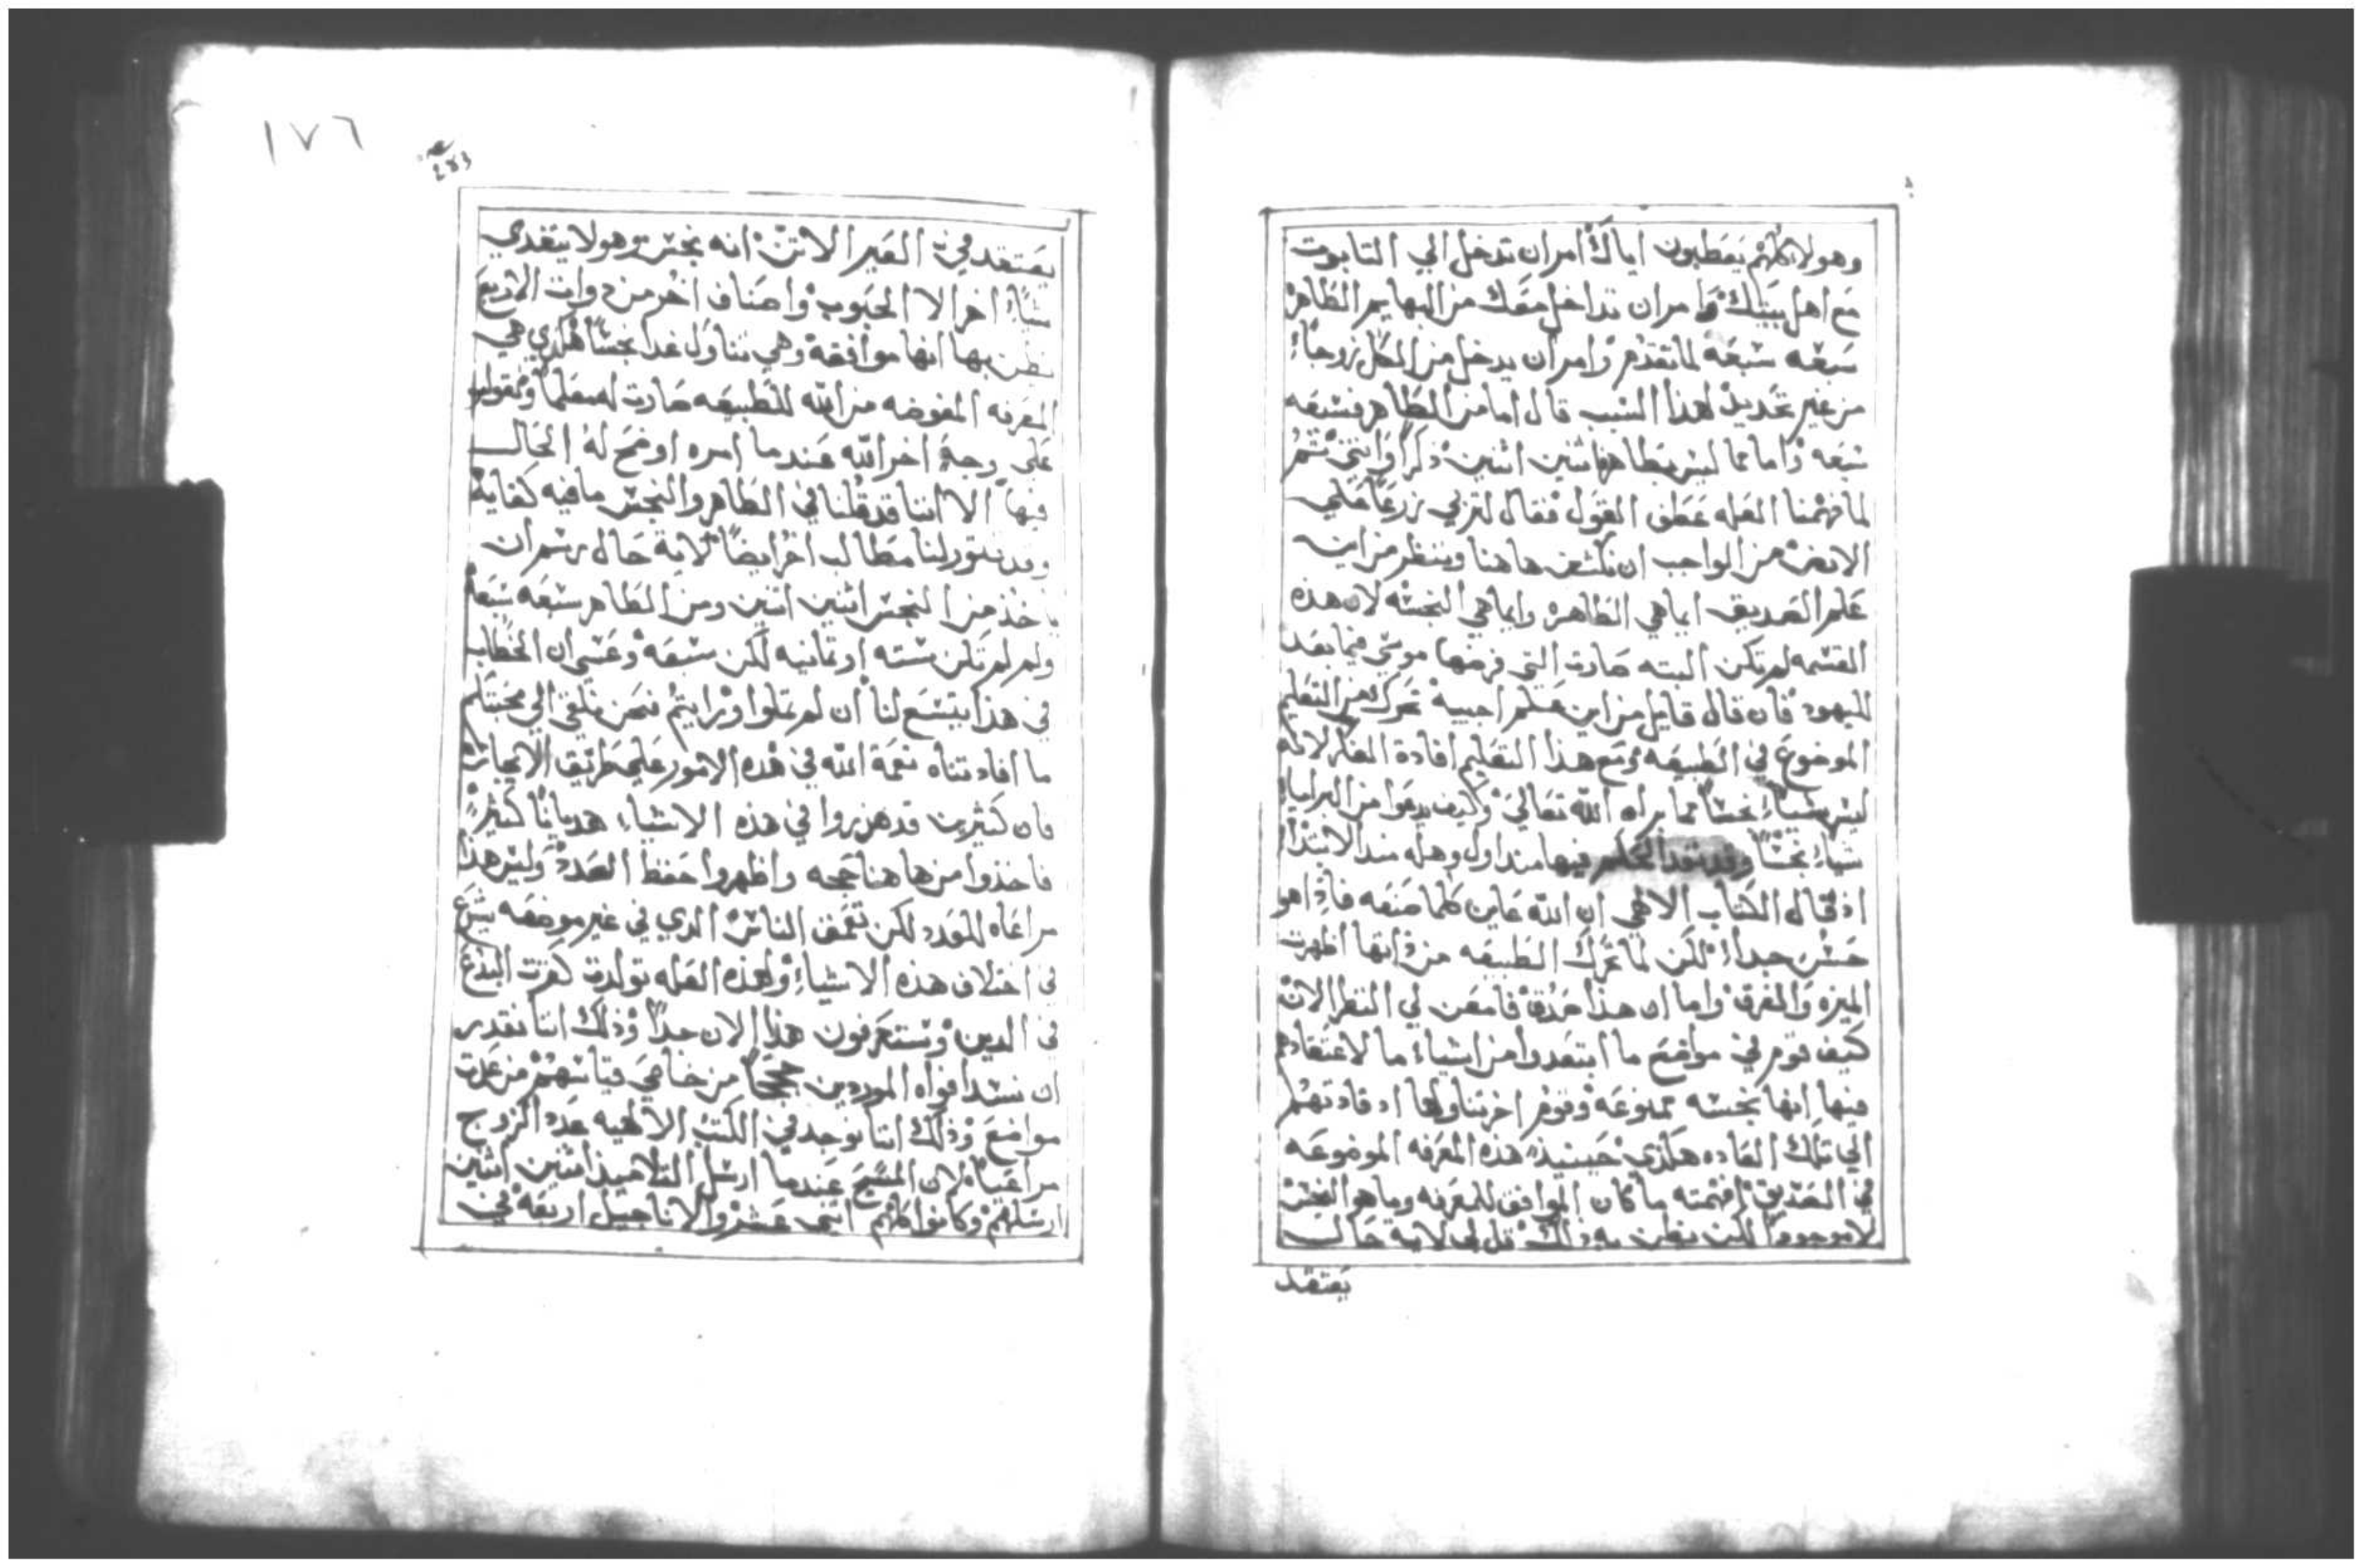 وهولا كلهم يعطبون اياك امر ان تدخل الي التابوت
مع اهل بيتك وامر ان تداخل معك من البهايم الطاهرة
سبعه سبعه لما تقدم وامر ان يدخل من الكل زوجاً
من غير تحديد لهذا السبب قال اما من الطاهر فسبعه
سبعه واما مما ليس بطاهر فاثنين اثنين ذكراً وانثي ثم
لما فهمنا العله عطف القول فقال لتربي زرعاً علي
الارض من الواجب ان نكشف هاهنا وننظر من اين
علم الصديق ايما هي الطاهره وايما هي النجسه لان هذه
القسمه لم تكن البته صارت التي فرضها موسي فيما بعد
لليهود فان قال قايل من اين علم اجيبه تحرك من التعليم
الموضوع في الطبيعه ومع هذا التعليم افادة العله لانه
ليس شيأ نجساً مما براه الله تعالي وكيف يدعوا من البرايا
شياء نجساً وقد نفد الحكم فيها منذ اول وهله منذ الابتدا
اذ قال الكتاب الالهي ان الله عاين كلما صنعه فاذا هو
حسن جداً لكن لما تحرك الطبيعه من ذاتها اظهرت
الميزه والفرق واما ان هذا حق فامعن لي النظر الان
كيف قوم في مواضع ما ابتعدوا من اشياء ما لاعتقادهم
فيها انها نجسه ممنوعه وقوم اخر تناولها اذ قادتهم
الي تلك العاده هكذي حينيذ هذه المعرفه الموضوعه
في الصديق افهمته ما كان الموافق للمعرفه وما هو النجس
لا موجوداً لكن يظن به ذلك قل لي لاية حال
يعتقد
١٧٦
283
يعتقد في العير الاتن انه نجس وهو لا يتغدي
شياء اخر الا الحبوب واصناف اخر من دوات الاربع
يظن بها انها موافقه وهي تتناول غدا نجساً هكذي هي
المعرفه المفوضه من الله للطبيعه صارت له معلماً ونقول
علي وجه اخر الله عندما امره اوضح له الحال
فيها الا اننا قد قلنا في الطاهر والنجس ما فيه كفاية
وقد تتور لنا مطالب اخر ايضاً لاية حال رسم ان
ياخذ من النجس اثنين اثنين ومن الطاهر سبعه سبعه
ولم لم تكن سته او تمانيه لكن سبعه وعسي ان الخطاب
في هذا يتسع لنا ان لم تملوا ورايتم فنحن نلقي الي محبتكم
ما افادتناه نعمة الله في هذه الامور علي طريق الايجاز
فان كثيرين قد هزروا في هذه الاشياء هديانا كثيراً
فاخذوا من هاهنا حجه واظهروا حفظ العدد وليس هذا
مراعاه للعدد لكن تعمق الناس الدي في غير موضعه يشرع
في اختلاق هذه الاشياء ولهذه العله تولدت كفرت البدع
في الدين وستعرفون هذا الان جداً وذلك اننا نقدر
ان نسد افواه الموردين حججاً من خاصي قياسهم من عدت
مواضع وذلك اننا نوجد في الكتب الالهيه عدد الزوج
مراعياً لان المسيح عندما ارسل التلاميذ اثنين اثنين
ارسلهم وكانوا كلهم اثني عشر والاناجيل اربعه في